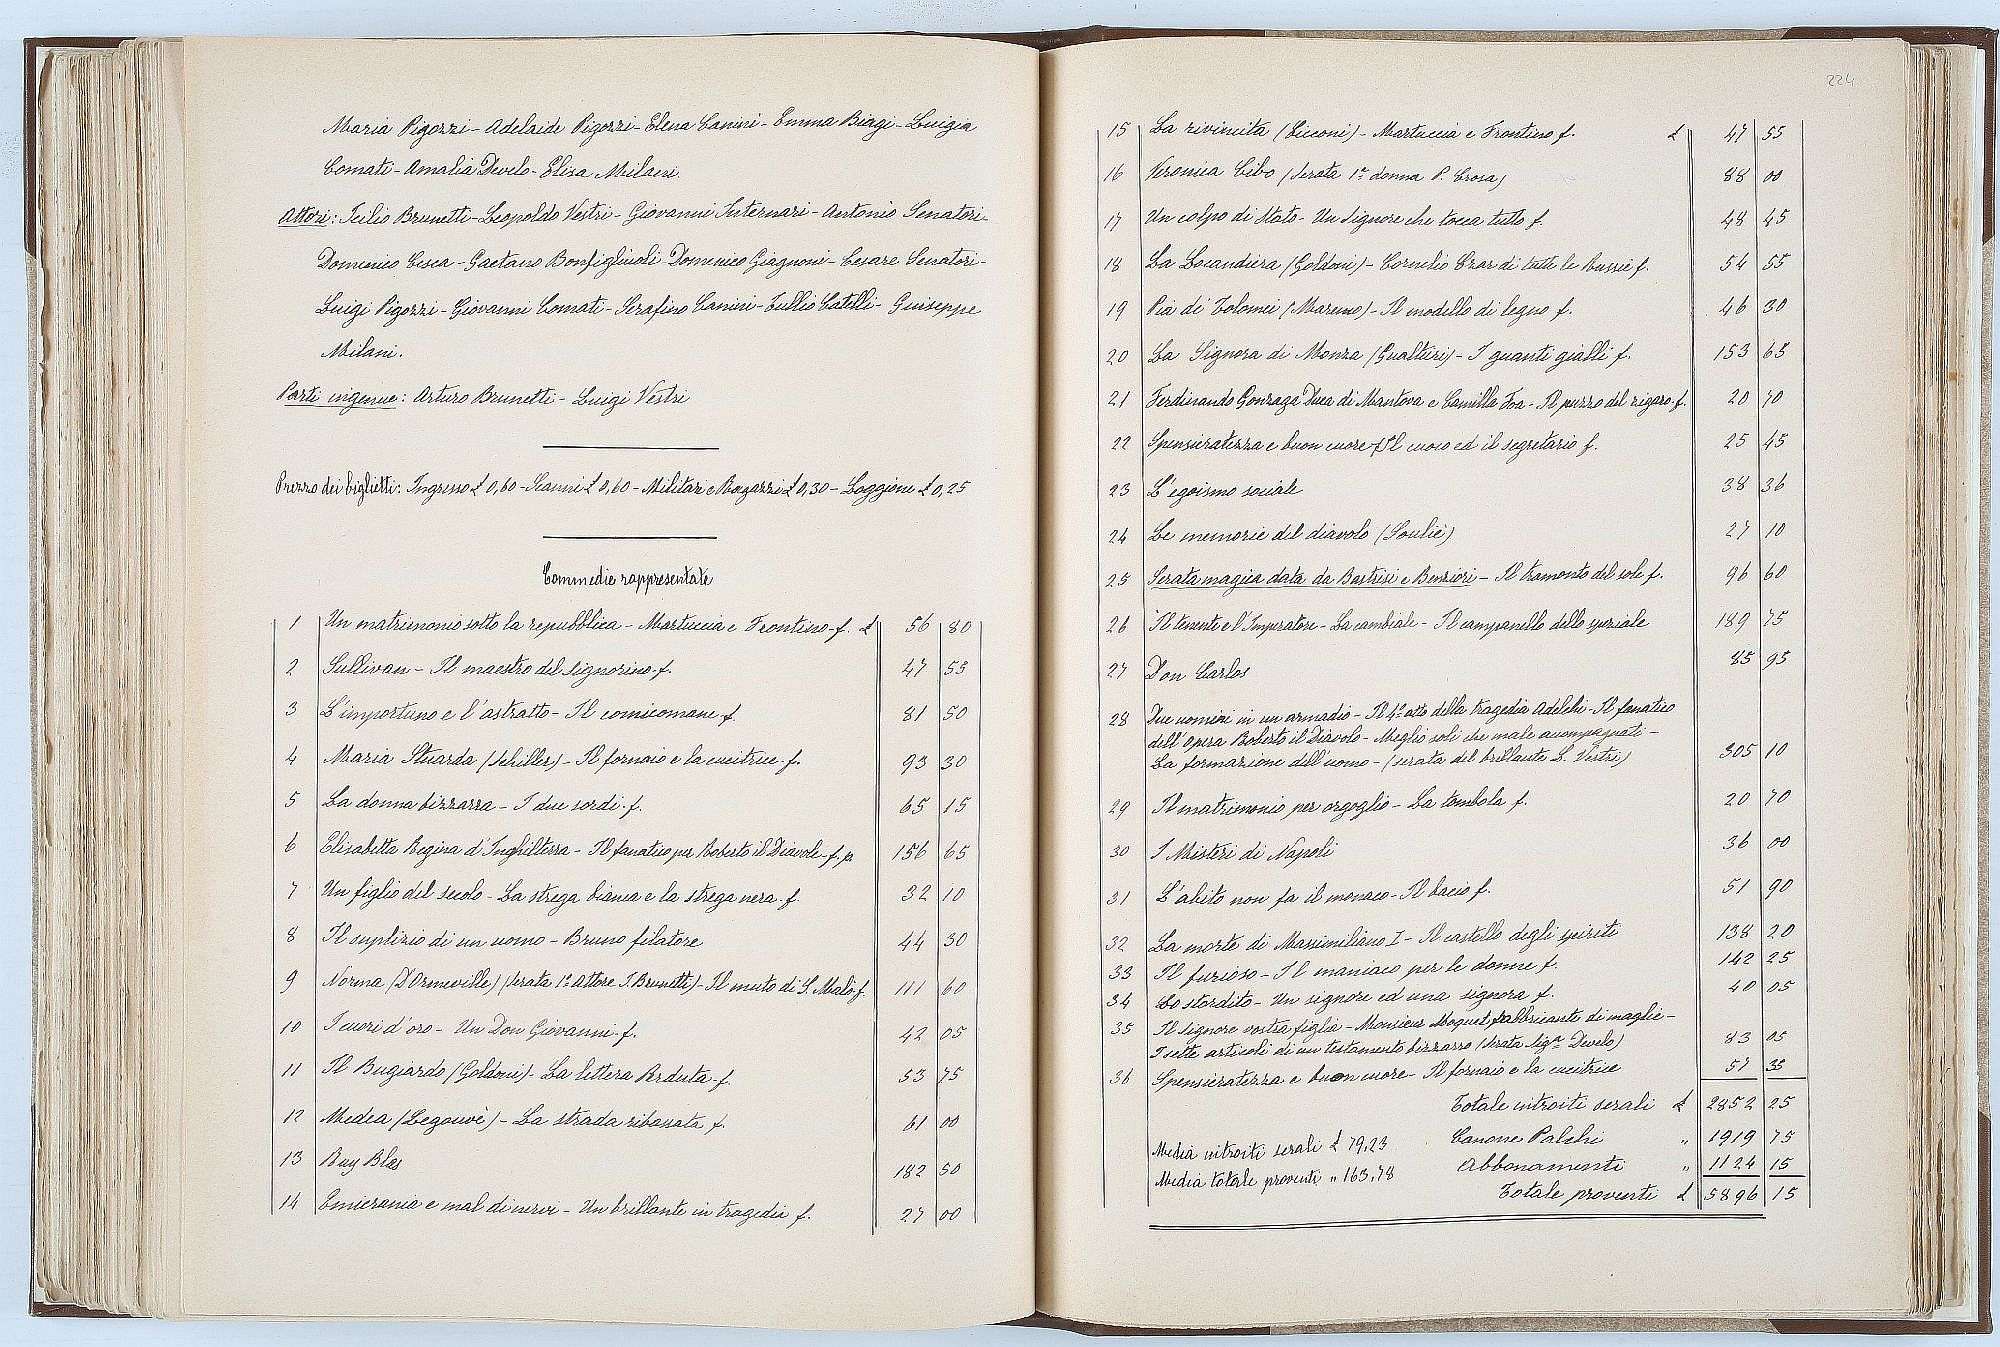 Maria Pigozzi - Adelaide Pigozzi - Elena Canini - Emma Biagi - Luigia
Comati - Amalia Develo - Elisa Milani
Attori: Icilio Brunetti - Leopoldo Vestri - Giovanni Internari - Antonio Senatori -
Domenico Cesca - Gaetano Bonfiglioli - Domenico Giagnoni - Cesare Senatori -
Luigi Pigozzi - Giovanni Comati - Serafino Canini - Tullio Catelli - Giuseppe
Milani.
Parti ingenue: Arturo Brunetti - Luigi Vestri
Prezzo dei biglietti: Ingresso £ 0,60 - Scanni £ 0,60 - Militari e Ragazzi £ 0,30 - Loggione £ 0,25
Commedie rappresentate
1 Un matrimonio sotto la repubblica - Martuccia e Frontino - f. £ 56 80
2 Sullivan - Il maestro del signorino - f. 47 55
3 L'importuno e l'astratto - Il comicomane f. 81 50
4 Maria Stuarda (Schiller) - Il fornaio e la cucitrice - f. 93 30
5 La donna bizzarra - I due sordi - f. 65 15
6 Elisabetta Regina d'Inghilterra - Il fanatico per Roberto il Diavolo - f. 156 65
7 Un figlio del secolo - La strega bianca e la strega nera - f. 32 10
8 Il suplizio di un uomo - Bruno filatore 44 30
9 Norma (D'Ormeville) (Serata 1° Attore I. Brunetti) - Il muto di S. Malò f. 111 60
10 I cuori d'oro - Un Don Giovanni - f. 42 05
11 Il Bugiardo (Goldoni) - La lettera Perduta - f. 53 75
12 Medea (Legouvè) - La strada ribassata f. 61 00
13 Ruy Blas 182 50
14 Emicrania e mal di nervi - Un brillante in tragedia f. 27 00
224
15 La rivincita (Ciconi) - Martuccia e Frontino f. £ 47 55
16 Veronica Cibo (Serata 1a donna P. Crosa) 88 00
17 Un colpo di Stato - Un Signore che tocca tutto f. 48 45
18 La Locandiera (Goldoni) - Cornelio Czar di tutte le Russie f. 54 55
19 Pia de' Tolomei (Marenco) - Il modello di legno f. 46 30
20 La Signora di Monza (Gualtieri) - I guanti gialli f. 153 65
21 Ferdinando Gonzaga Duca di Mantova e Camilla Faa - Il puzzo del zigaro f. 20 70
22 Spensieratezza e buon cuore - Il cuoco ed il segretario f. 25 45
23 L'egoismo sociale 38 36
24 Le memorie del diavolo (Souliè) 27 10
25 Serata magica data da Bastrisi e Benziori - Il tramonto del sole f. 96 60
26 Il tenente e l'Imperatore - La cambiale - Il campanello dello speziale 189 75
27 Don Carlos 85 95
28 Due uomini in un armadio - Il 4° atto della tragedia Adelchi - Il fanatico
dell'Opera Roberto il Diavolo - Meglio soli che male accompagnati -
La formazione dell'uomo - (serata del brillante L. Vestri) 305 10
29 Il matrimonio per orgoglio - La tombola f. 20 70
30 I Misteri di Napoli 36 00
31 L'abito non fa il monaco - Il bacio f. 51 90
32 La morte di Massimiliano I - Il castello degli spiriti 138 20
33 Il furioso - Il maniaco per le donne f. 142 25
34 Lo stordito - Un signore ed una signora f. 40 05
35 Il Signore vostra figlia - Monsieur Moquet, fabbricante di maglie -
I sette articoli di un testamento bizzarro (Serata Sig.ra Develo) 83 05
36 Spensieratezza e buon cuore - Il fornaio e la cucitrice 57 35
Totale introiti serali £ 2852 25
Media introiti serali £ 79,23 Canone Palchi " 1919 75
Media totale proventi " 163,78 Abbonamenti " 1124 15
Totale proventi £ 5896 15